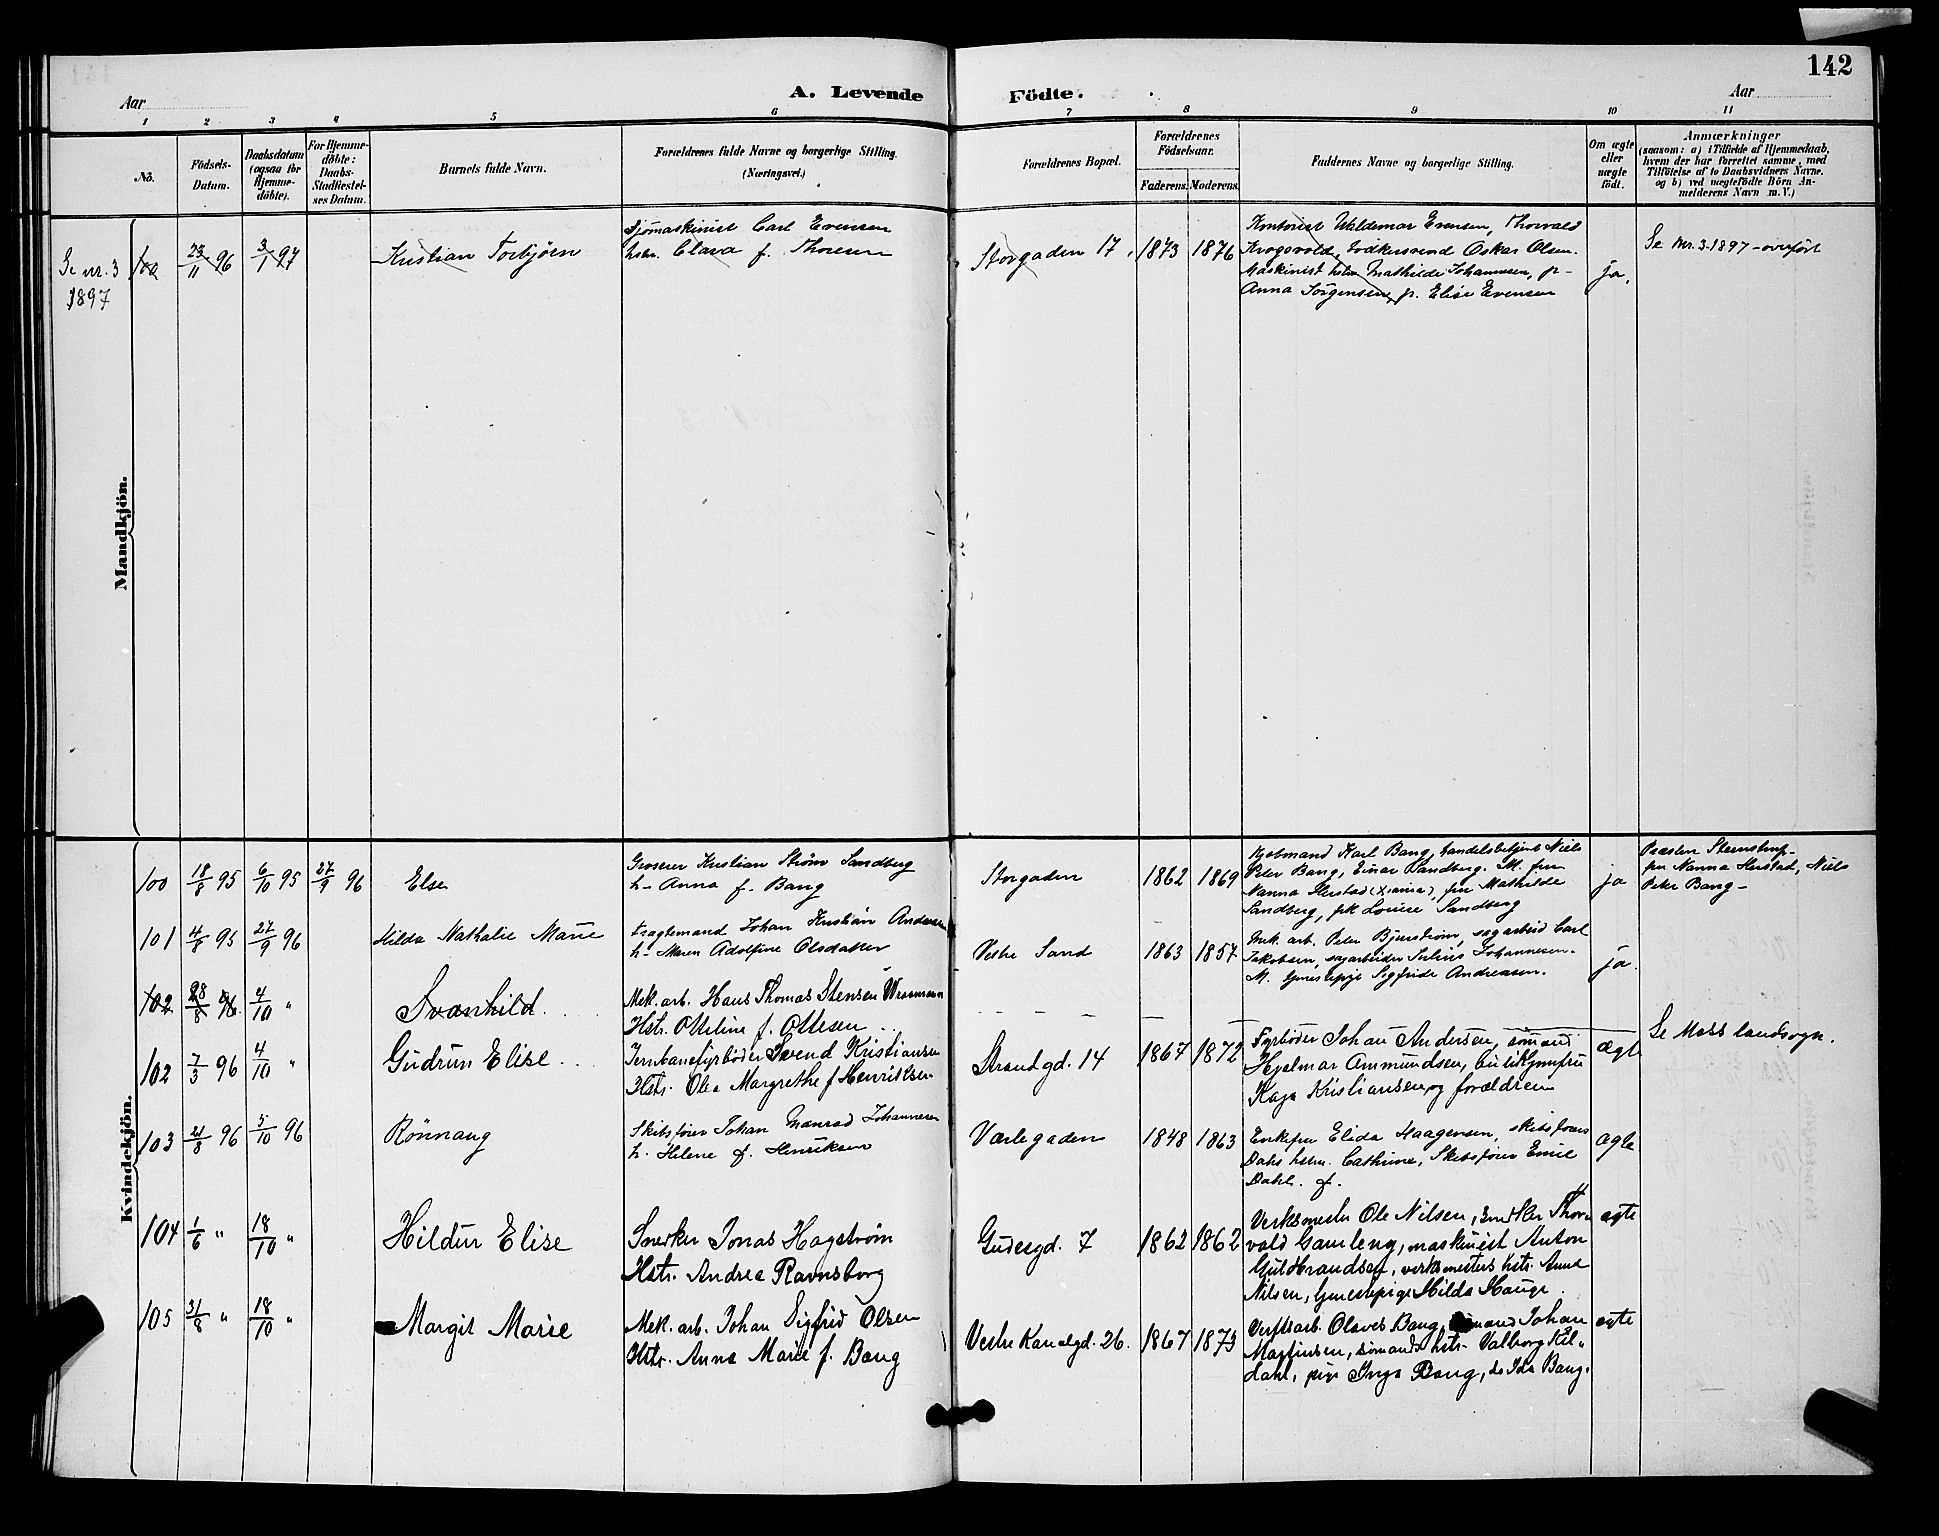 142
Aar
A. Levende Födte.
Aar
1 2 3 4 5 6 7 8 9 10 11
No.
Födsels-Datum.
Daabsdatum (ogsaa for Hjemmedöbte).
For Hjemmedöbte: Daabs-Stadfæstelses Datum.
Barnets fulde Navn.
Forældrenes fulde Navne og borgerlige Stilling. (Næringsvei.)
Forældrenes Bopæl.
Forældrenes Födselsaar.
Faderens. Moderens.
Faddernes Navne og borgerlige Stilling.
Om ægte eller uægte födt.
Anmærkninger
(saasom: a) i Tilfælde af Hjemmedaab,
hvem der har forrettet samme, med
Tilföielse af to Daabsvidners Navne,
og b) ved uægtefödte Börn Anmelderens Navn m.V.)
Mandkjön.
Se nr. 3
1897
100 23/11 96 3/1 97 Kristian Torbjörn
Sjömaskinist Carl Evensen
hstr. Clara f. Thoresen
Storgaden 17. 1873 1876
Kontorist Waldemar Evensen, Thorvald
Krogsvold, Oskar Olsen.
Maskinist hstr Mathilde Johannesen, p-
Anna Jörgensen, p. Elise Evensen
ja.
Se Nr. 3-1897 - overfört
Kvindekjön.
100 18/8 95 6/10 95 27/9 96 Else
Grosserer Kristian Ström Sandberg
h- Anna f. Bang
Storgaden 1862 1869
Kjöbmand Karl Bang, handelsbetjent Niels
Peter Bang, Einar Sandberg. M. fru
Nanna Herstad (Xania), fru Mathilde
Sandberg, frk Louise Sandberg
ja
Præsten Steenstrup-
fru Nanna Herstad, Niels
Peter Bang-
101 4/8 95 27/9 96 Hilda Nathalie Marie
Fragtemand Johan Kristian Andersen
h- Maren Adolfine Olsdatter
Vestre Sand 1863 1857
Mek. arb. Peter Bjurström, sagarbeid Carl
Jakobsen, sagarbeider Julius Johannesen.
M. tjenestepige Sigfride Andreasen.
ja.
102 28/8 96. 4/10 " Svanhild
Mek. arb. Hans Thomas Stensen
Hstr. Otteline f. Ottesen
Se Moss landsogn.
102 7/3 96 4/10 " Gudrun Elise
Jernbanefyrböder Svend Kristiansen
Hstr. Olea Margrethe f Henriksen
Strandgd. 14 1867 1872
Fyrböder Johan Andersen, sömand
Hjalmar Ammundsen,
Kaja Kristiansen, og forældren
ægte
103 21/8 96 5/10 96 Rönnaug
Skibsförer Johan Johannesen
h. Helene f. Henriksen
Værlegaden 1848 1863
Enkefru Elida Haagensen, skibsförer
Dahls hstru. Cathrine, Skibsförer Emil
Dahl. f.
ægte
104 1/6 " 18/10 " Hildur Elise
Snedker Jonas Hagström
Hstr. Andrea Ravnsborg
Gudesgd. 7 1862 1862
Verksmester Ole Nilsen, snedker Thor-
vald Gamleng, maskinist Anton
Guldbrandsen, verksmesters hstr. Anna
Nilsen, tjenestepige Hilda Hauge.
ægte
105 31/8 " 18/10 " Margit Marie
Mek. arb. Johan Sigfrid Olsen
Hstr. Anna Marie f. Bang
Vestre Kanalgd. 26. 1867 1873
Verftsarb. Olaves Bang, sömand Johan
Martinsen, sömands hstr. Valborg Kil-
dahl, pige Inga Bang, do Ida Bang.
ægte